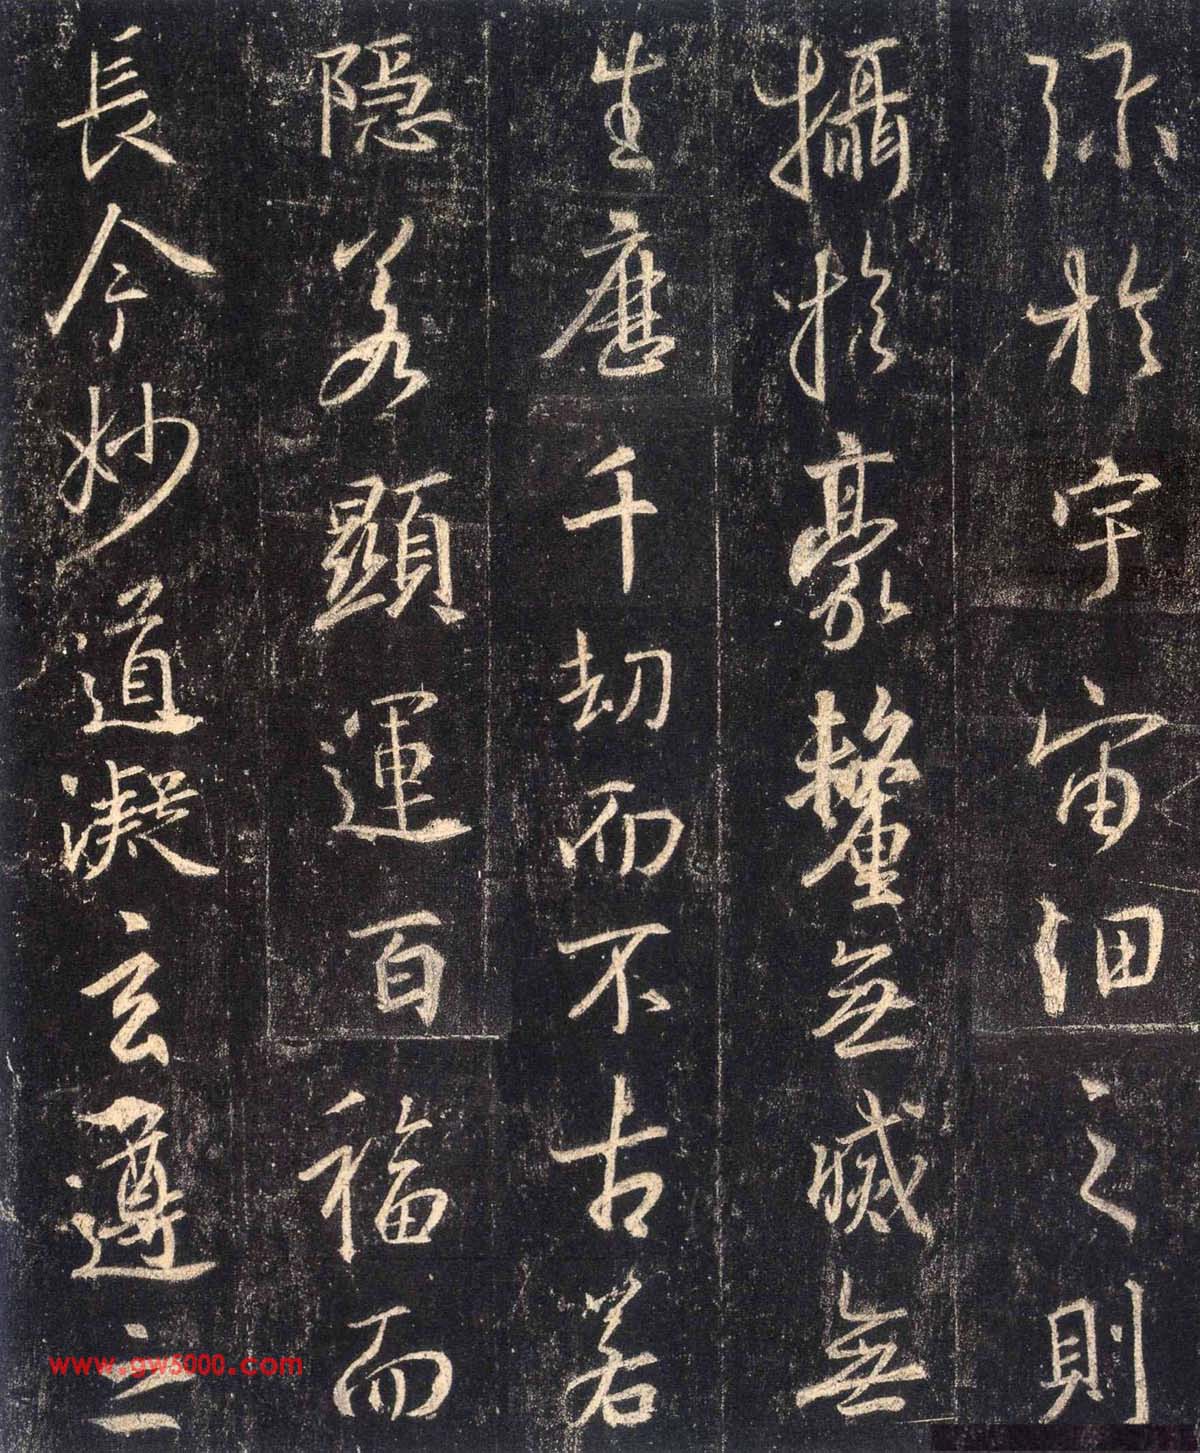 弥於宇宙細之則
攝於豪釐無滅無
生歷千劫而不古若
隱若顯運百福而
長今妙道凝玄遵之
www.gw5000.com